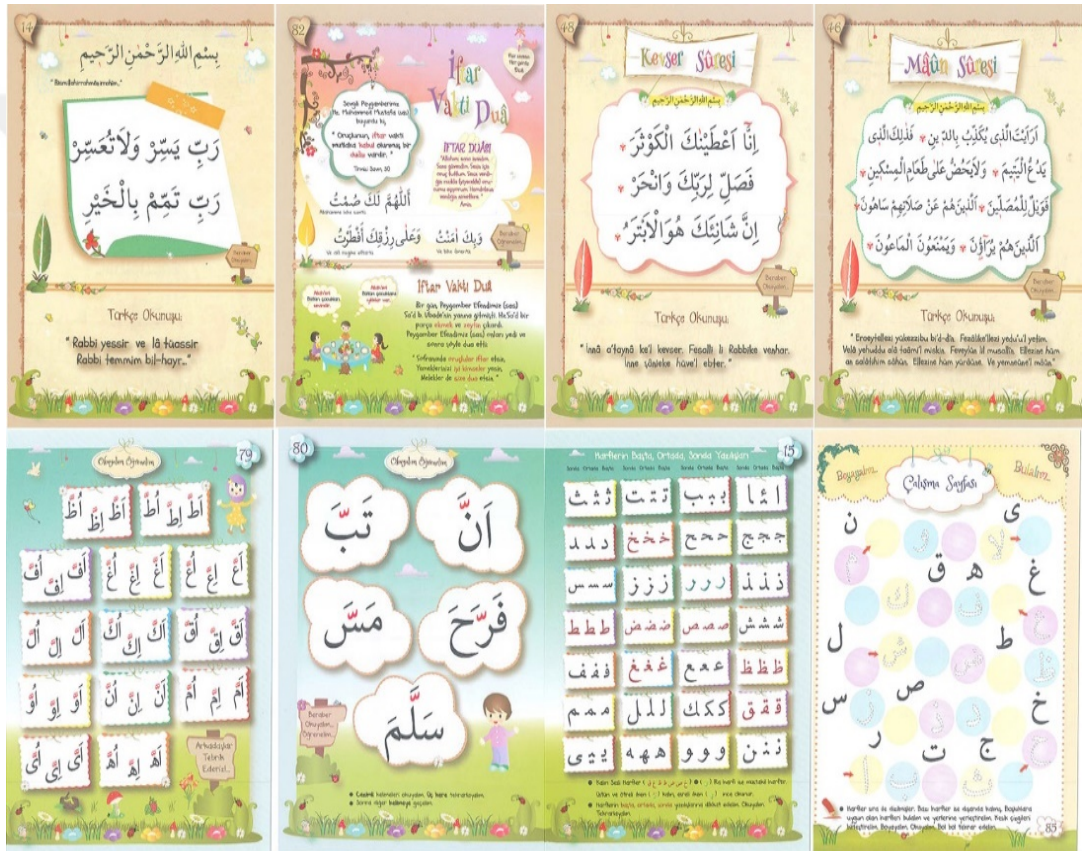 14
بِسْمِ اللهِ الرَّحْمٰنِ الرَّحِيمِ
رَبِّ يَسِّرْ وَلَاتُعَسِّرْ
رَبِّ تَمِّمْ بِالْخَيْرِ
Türkçe Okunuşu:
" Rabbi yessir ve lâ tüassir
Rabbi temmim bil-hayr... "
82
İftar
Vakti Duâ
Sevgili Peygamberimiz
Hz. Muhammed Mustafa (sas)
buyurdu ki,
" Oruçlunun, iftar vakti
mutlaka kabul olunmuş bir
duâsı vardır. "
İFTAR DUÂSI
اَللّٰهُمَّ لَكَ صُمْتُ
وَبِكَ اٰمَنْتُ
وَعَلٰى رِزْقِكَ أَفْطَرْتُ
Beraber
Öğrenelim...
İftar Vakti Duâ
Bir gün, Peygamber Efendimiz (sas)
Sa'd b. Ubade'nin yanına gitmişti. Hz.Sa'd bir
parça ekmek ve zeytin çıkardı.
Peygamber Efendimiz (sas) onları yedi ve
sonra şöyle dua etti:
" Sofranızda oruçlular iftar etsin,
Yemeklerinizi iyi kimseler yesin,
Melekler de size dua etsin. "
48
Kevser Sûresi
بِسْمِ اللهِ الرَّحْمٰنِ الرَّحِيمِ
اِنَّٓا اَعْطَيْنٰكَ الْكَوْثَرَ
فَصَلِّ لِرَبِّكَ وَانْحَرْ
اِنَّ شَانِئَكَ هُوَ الْاَبْتَرُ
Beraber
Okuyalım...
Türkçe Okunuşu:
" İnnâ a'taynâ ke'l kevser. Fesalli li Rabbike venhar.
İnne şânieke hüve'l ebter. "
46
Mâûn Sûresi
بِسْمِ اللهِ الرَّحْمٰنِ الرَّحِيمِ
اَرَاَيْتَ الَّذٖى يُكَذِّبُ بِالدّٖينِ فَذٰلِكَ الَّذٖى
يَدُعُّ الْيَتٖيمَ وَلَايَحُضُّ عَلٰى طَعَامِ الْمِسْكٖينِ
فَوَيْلٌ لِلْمُصَلّٖينَ اَلَّذٖينَ هُمْ عَنْ صَلَاتِهِمْ سَاهُونَ
اَلَّذٖينَ هُمْ يُرَآؤُنَ وَيَمْنَعُونَ الْمَاعُونَ
Beraber
Okuyalım...
Türkçe Okunuşu:
79
Okuyalım Öğrenelim
اَطَّ اِطَّ اُطَّ
اَظَّ اِظَّ اُظَّ
اَعَّ اِعَّ اُعَّ
اَغَّ اِغَّ اُغَّ
اَفَّ اِفَّ اُفَّ
اَقَّ اِقَّ اُقَّ
اَكَّ اِكَّ اُكَّ
اَلَّ اِلَّ اُلَّ
اَمَّ اِمَّ اُمَّ
اَنَّ اِنَّ اُنَّ
اَوَّ اِوَّ اُوَّ
اَهَّ اِهَّ اُهَّ
اَىَّ اِىَّ اُىَّ
Arkadaşlar
Tebrik
Ederiz!...
80
Okuyalım Öğrenelim
اَنَّ
تَبَّ
فَرَّحَ
مَسَّ
سَلَّمَ
Beraber
Okuyalım...
Öğrenelim...
15
Harflerin Başta, Ortada, Sonda Yazılışları
Sonda Ortada Başta Sonda Ortada Başta Sonda Ortada Başta Sonda Ortada Başta
ا ئا ا
ب‍ ‍ب‍ ‍ب
ت‍ ‍ت‍ ‍ت
ث‍ ‍ث‍ ‍ث
ج‍ ‍ج‍ ‍ج
ح‍ ‍ح‍ ‍ح
خ‍ ‍خ‍ ‍خ
د ‍د ‍د
ذ ‍ذ ‍ذ
ر ر ر
ز ز ز
س‍ ‍س‍ ‍س
ش‍ ‍ش‍ ‍ش
ص‍ ‍ص‍ ‍ص
ض‍ ‍ض‍ ‍ض
ط‍ ‍ط‍ ‍ط
ظ‍ ‍ظ‍ ‍ظ
ع‍ ‍ع‍ ‍ع
غ‍ ‍غ‍ ‍غ
ف‍ ‍ف‍ ‍ف
ق‍ ‍ق‍ ‍ق
ك‍ ‍ك‍ ‍ك
ل‍ ‍ل‍ ‍ل
م‍ ‍م‍ ‍م
ن‍ ‍ن‍ ‍ن
و و و
ه‍ ‍ه‍ ‍ه
ي‍ ‍ي‍ ‍ى
Boyayalım...
Bulalım...
Çalışma Sayfası
ن
ى
ق
ه
غ
ل
ط
س
ص
خ
ر
ت
ج
85